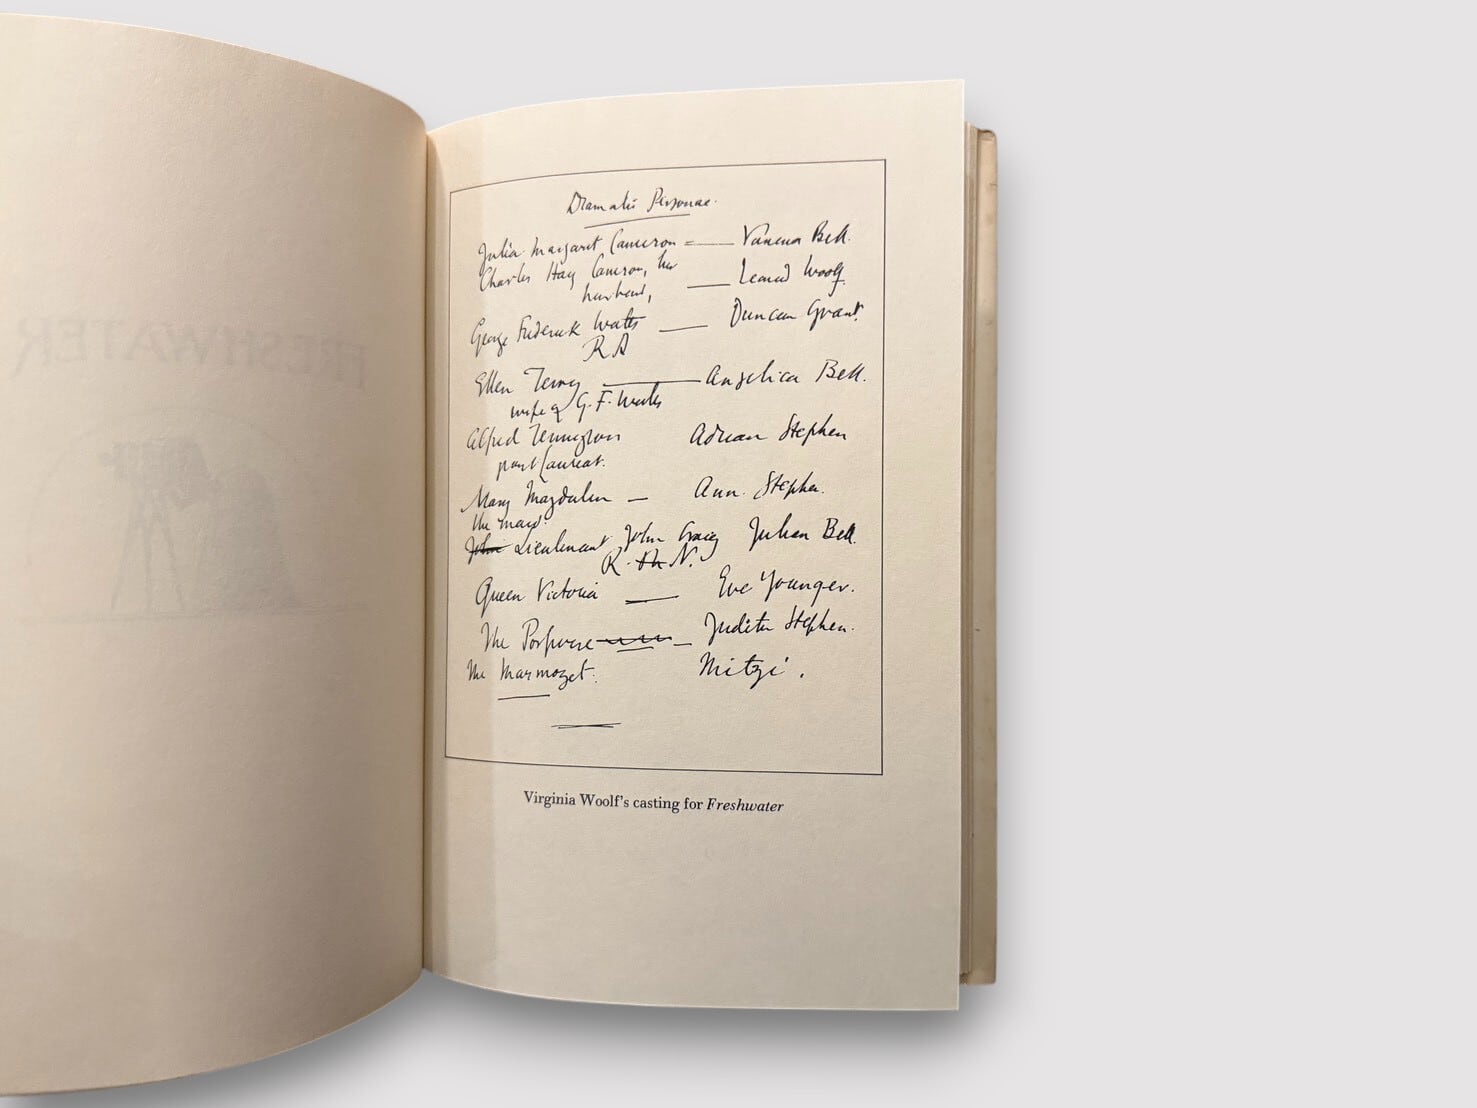 FRESHWATER
Dramatis Personae.
Julia Margaret Cameron = — Vanessa Bell.
Charles Hay Cameron, her
husband, — Leonard Woolf.
George Frederick Watts — Duncan Grant.
R A
Ellen Terry — Angelica Bell.
wife of G. F. Watts
Alfred Tennyson Adrian Stephen
poet Laureat.
Mary Magdalen — Ann. Stephen.
the maid.
John Lieutenant John Craig Julian Bell.
R. N.
Queen Victoria — Eve Younger.
The Porpoise — Judith Stephen.
The Marmozet. Mitzi.
Virginia Woolf's casting for Freshwater